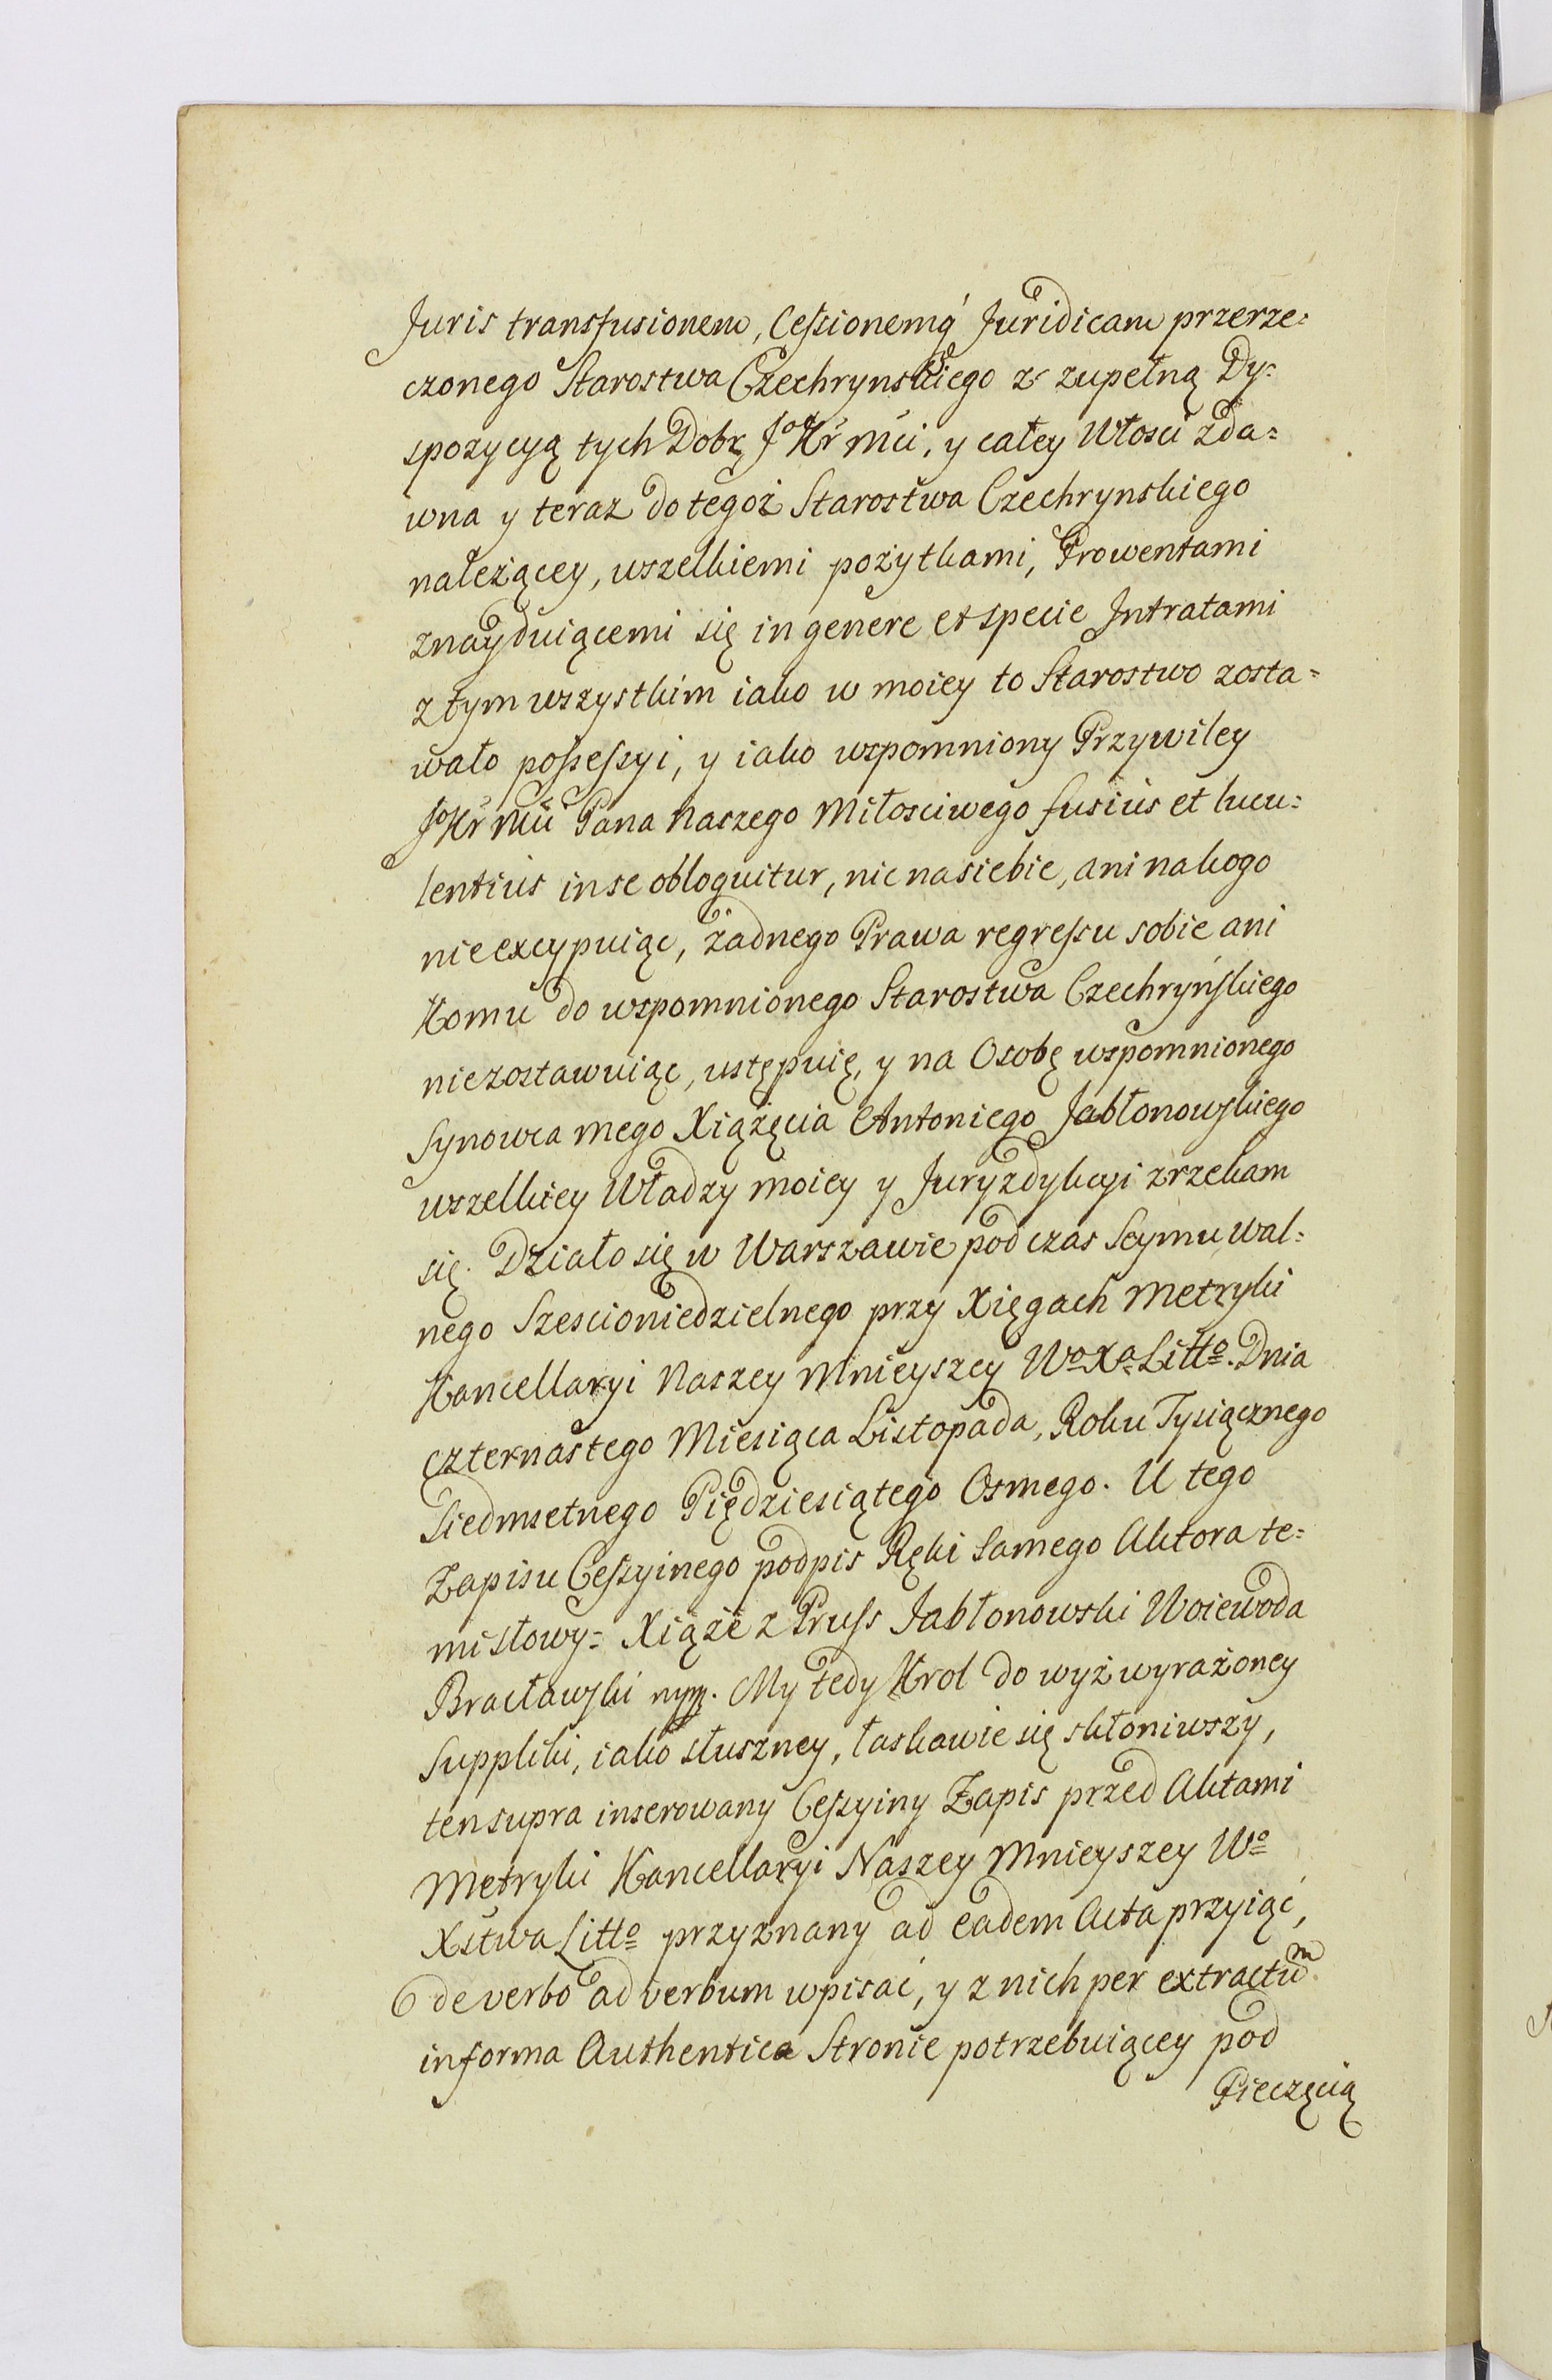 Juris transfusionem, Cessionemq́ Juridicam przerze=
czonego Starostwa Czechrynskiego z zupełną Dy=
spozycyą tych Dobr Jo Kr̃ Mci, y całey Włosci zda=
wna y teraz do tegoż Starostwa Czechrynskiego
należącey, wszelkiemi pożytkami, Prowentami
znayduiącemi się in genere et specie Intratami
z tym wszystkim iako w moiey to Starostwo zosta=
wało possessyi, y iako wspomniony Przywiley
Jo Kr̃ Mci Pana Naszego Miłosciwego fusius et lucu=
lentius in se obloquitur, nic na siebie, ani nakogo
nie excypuiąc, żadnego Prawa regressu sobie ani
Komu do wspomnionego Starostwa Czechryńskiego
niezostawuiąc, ustępuię, y na Osobę wspomnionego
Synowca mego Xiążęcia Antoniego Jabłonowskiego
wszelkiey Władzy moiey y Juryzdykcyi zrzekam
się. Działo się w Warszawie pod czas Seymu Wal=
nego Szescioniedzielnego przy Xięgach Metryki
Kancellaryi Naszey Mnieyszey Wo Xa Litto. Dnia
czternastego Miesiąca Listopada, Roku Tysiącznego
Siedmsetnego Pięдziesiątego Osmego. U tego
Zapisu Cessyinego podpis Ręki Samego Aktora te=
mi słowy= Xiąże z Pruss Jabłonowski Woiewoda
Bracławski mp. My tedy Krol do wyż wyrażoney
Suppliki, iako słuszney, łaskawie się skłoniwszy,
ten supra inserowany Cessyiny Zapis przed Aktami
Metryki Kancellaryi Naszey Mnieyszey Wo
Xstwa Litto przyznany ad eadem Acta przyiąć,
de verbo ad verbum wpisać, y z nich per extractum
in forma Authentica Stronie potrzebuiącey pod
Pieczęcią